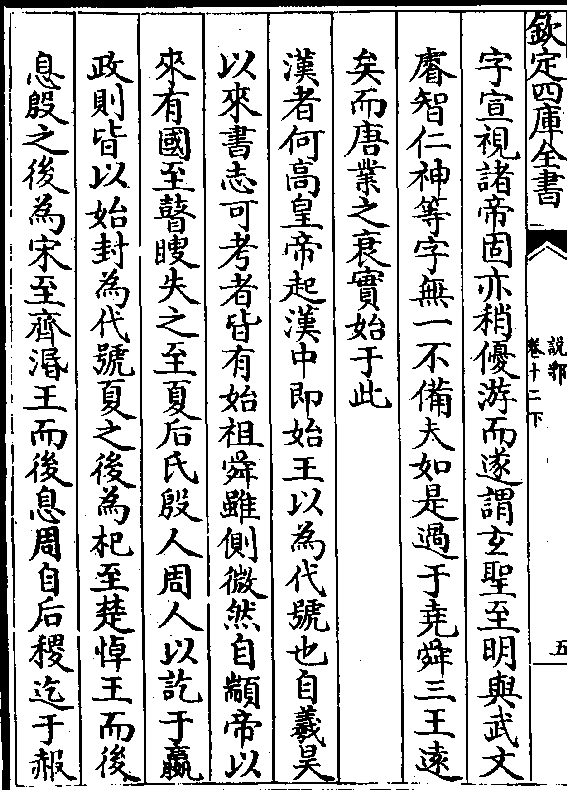 欽定四庫全書
說郛
卷十二下
五
字宣視諸帝固亦稍優游而遂謂玄聖至明與武文
睿智仁神等字無一不備夫如是過于堯舜三王遠
矣而唐業之衰實始于此
漢者何高皇帝起漢中即始王以為代號也自羲昊
以來書志可考者皆有始祖舜雖側微然自顓帝以
來有國至瞽瞍失之至夏后氏殷人周人以訖于嬴
政則皆以始封為代號夏之後為杞至楚悼王而後
息殷之後為宋至齊湣王而後息周自后稷迄于赧